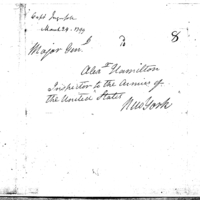 March 29. 1799
8
Major Genl.
To
Alexr Hamilton
Inspector to the Armies of
the United States
New York